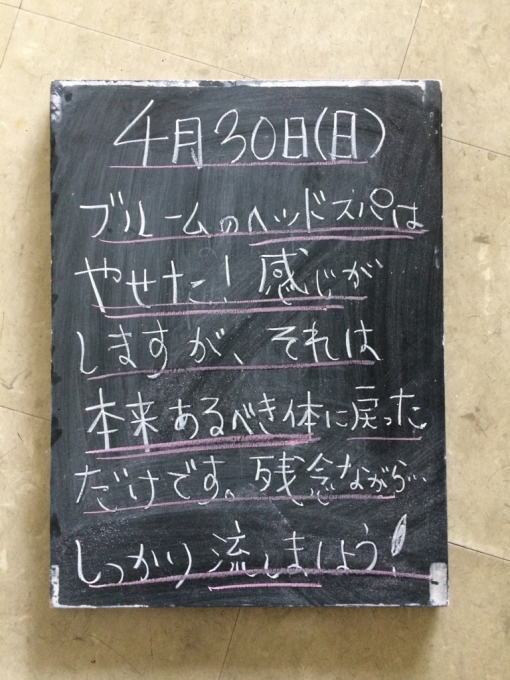 4月30日(日)
ブルームのヘッドスパは
やせた!感じが
しますが、それは
本来あるべき体に戻った
だけです。残念ながら…
しっかり流しましょう!